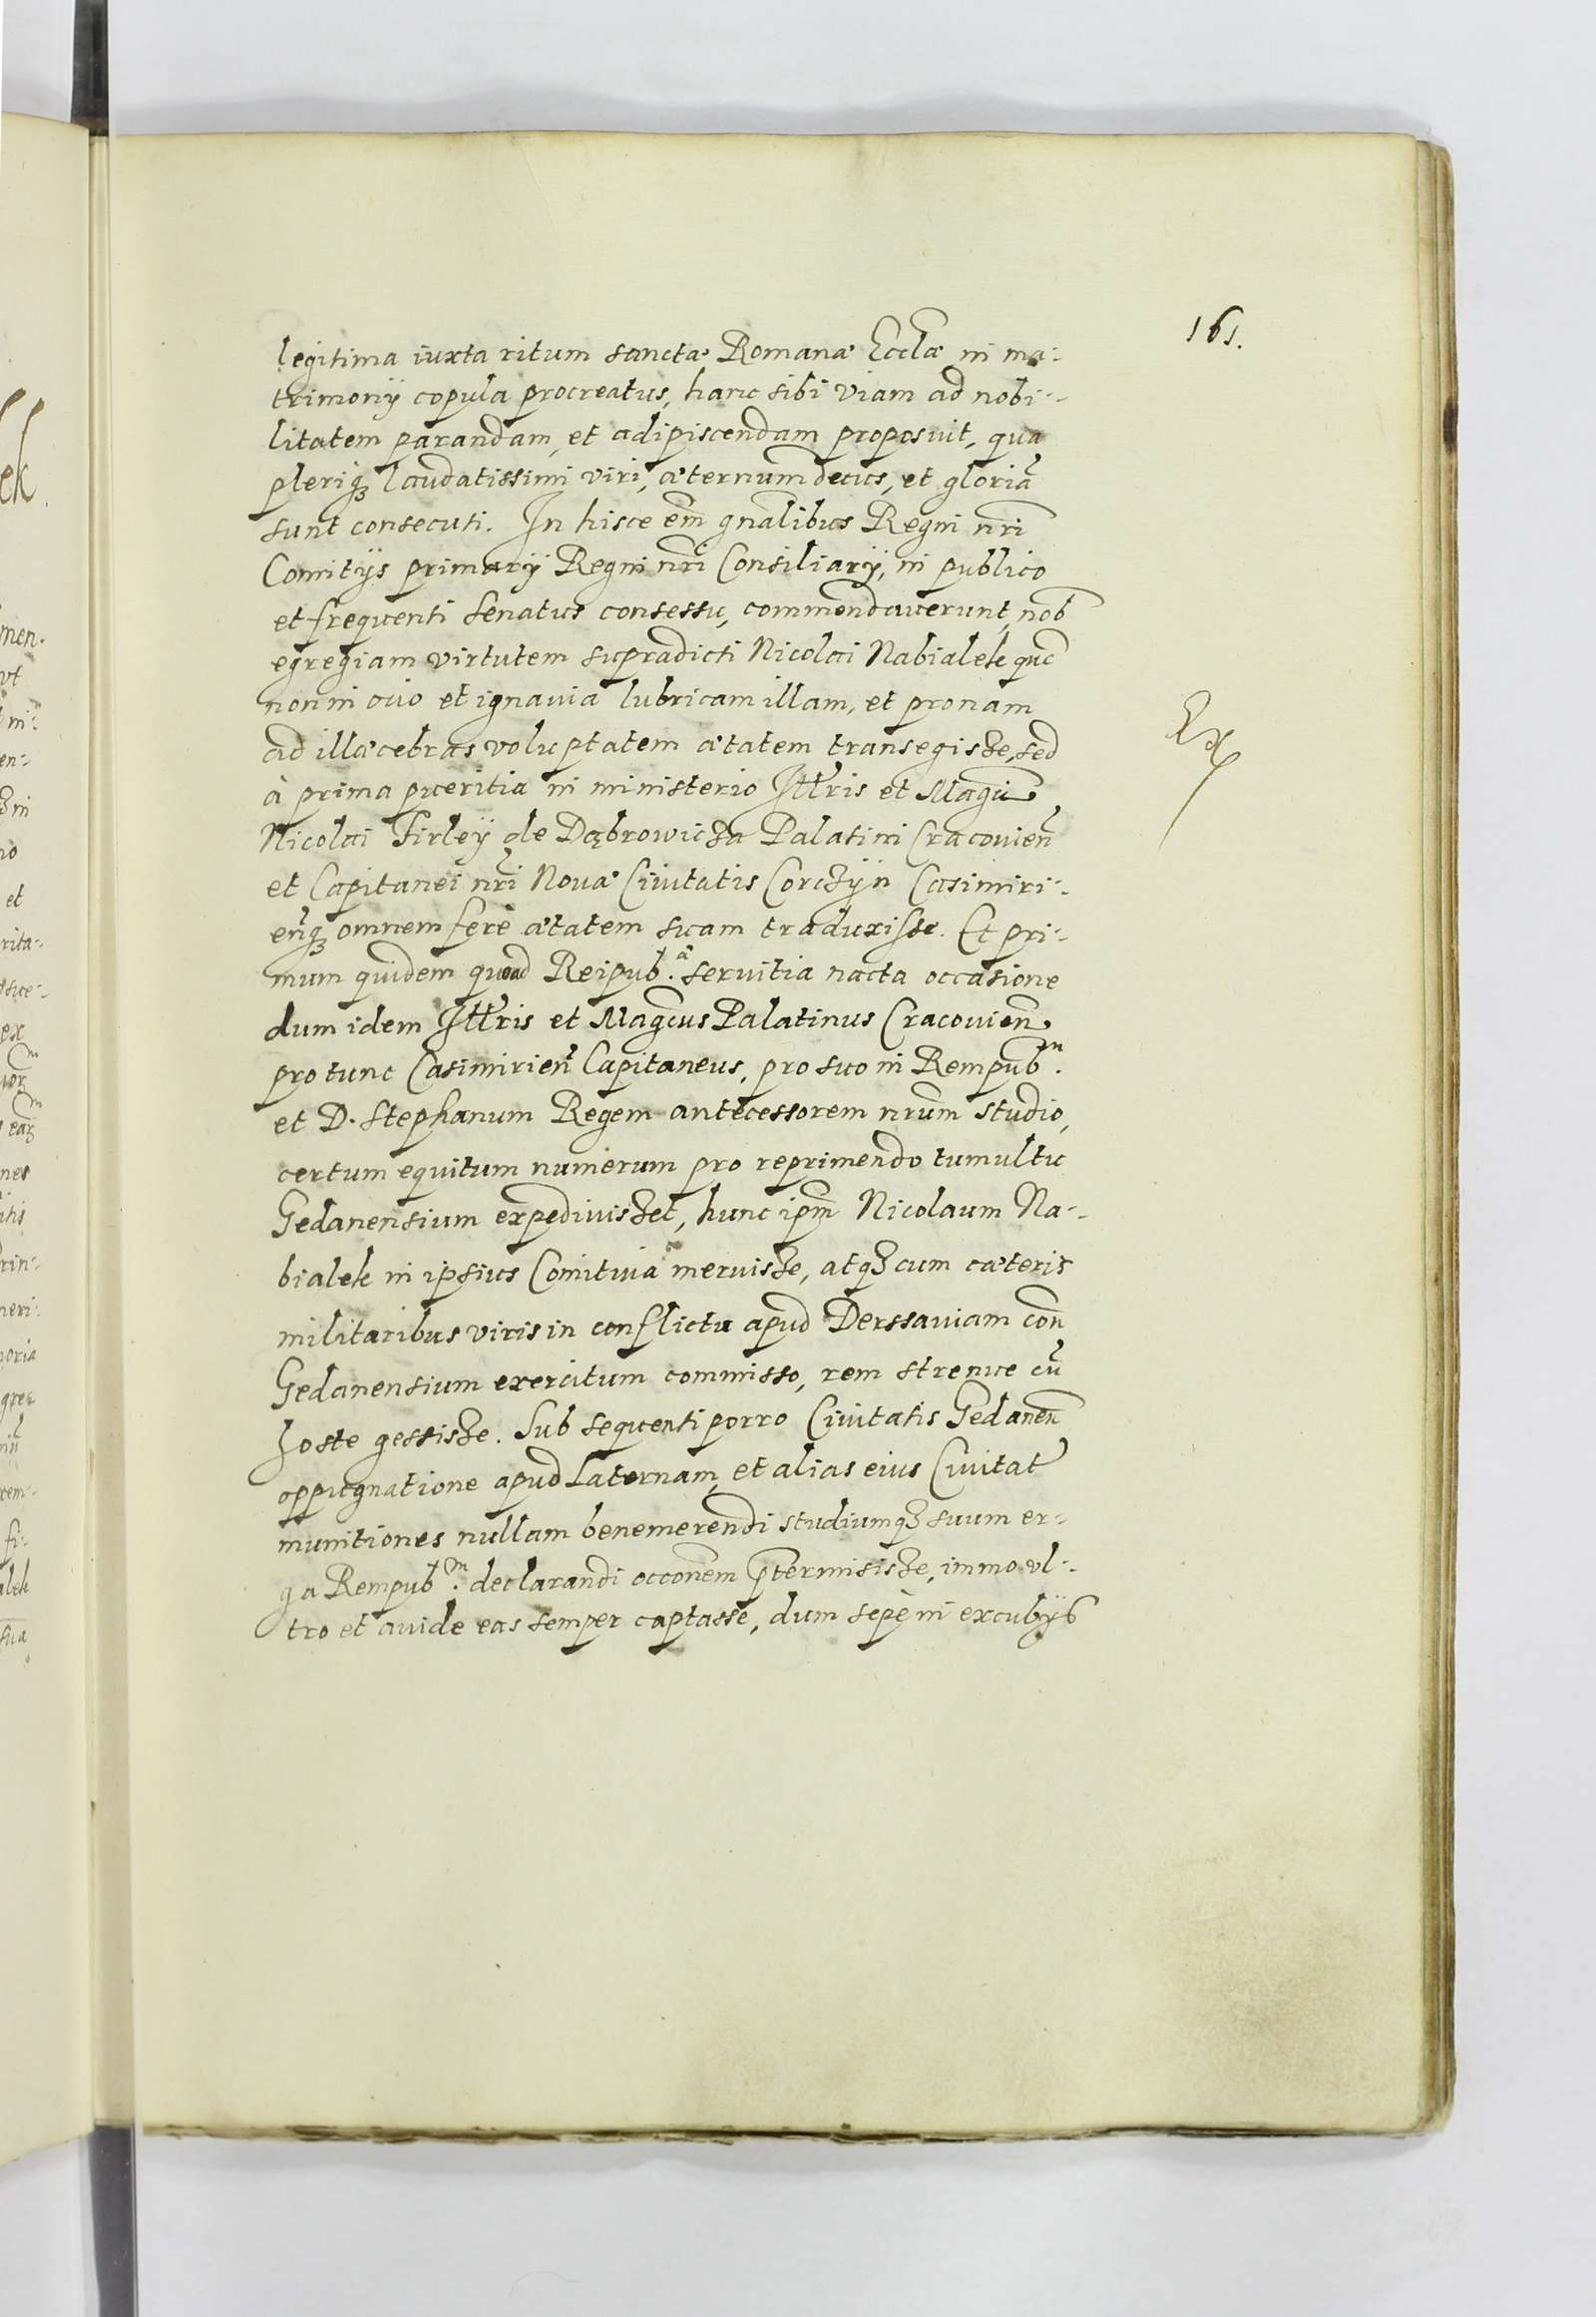 161.
legitima iuxta ritum sanctæ Romanæ Eccłæ in ma-
trimonij copula procreatus, hanc sibi viam ad nobi-
litatem parandam, et adipiscendam proposuit, qua
pleriq₃ laudatissimi viri, æternum decus, et gloriã
sunt consecuti. In hisce em̃ gnãlibus Regni nr̃i
Comitijs primarij Regni nr̃i Consiliarij, in publico
et frequenti senatus consessu, commendauerunt, nob̃
egregiam virtutem supradicti Nicolai Nabialek quẽ
non in ocio et ignauia lubricam illam, et pronam
ad illæcebras voluptatem ætatem transegisse, sed
à prima pueritia in ministerio Illr̃is et Magci
Nicolai Firleÿ de Dąbrowicza Palatini Cracouien̄
et Capitanei nr̃i Nouæ Ciuitatis Corczÿn Casimiri-
en̄q₃ omnem ferè ætatem suam traduxisse. Et pri-
mum quidem quoad Reipub.ᵃ seruitia nacta occasione
dum idem Illr̃is et Magcus Palatinus Cracouien̄
pro tunc Casimirien̄ Capitaneus, pro suo in Rempub.ᵐ
et D. Stephanum Regem antecessorem nrũm studio,
certum equitum numerum pro reprimendo tumultu
Gedanensium expediuisset, hunc ipm̃ Nicolaum Na-
bialek in ipsius Comitiua meruisse, atq₃ cum cæteris
militaribus viris in conflictu apud Derssauiam con̄
Gedanensium exercitum commisso, rem strenue cũ
hoste gessisse. Sub sequenti porro Ciuitatis Gedanen̄
oppugnatione apud Laternam, et alias eius Ciuitat̃
munitiones nullam benemerendi studiumq₃ suum er-
ga Rempub.ᵐ declarandi occõnem p̃termisisse, immo vl-
tro et auide eas semper captasse, dum sepè in excubijs
Ex